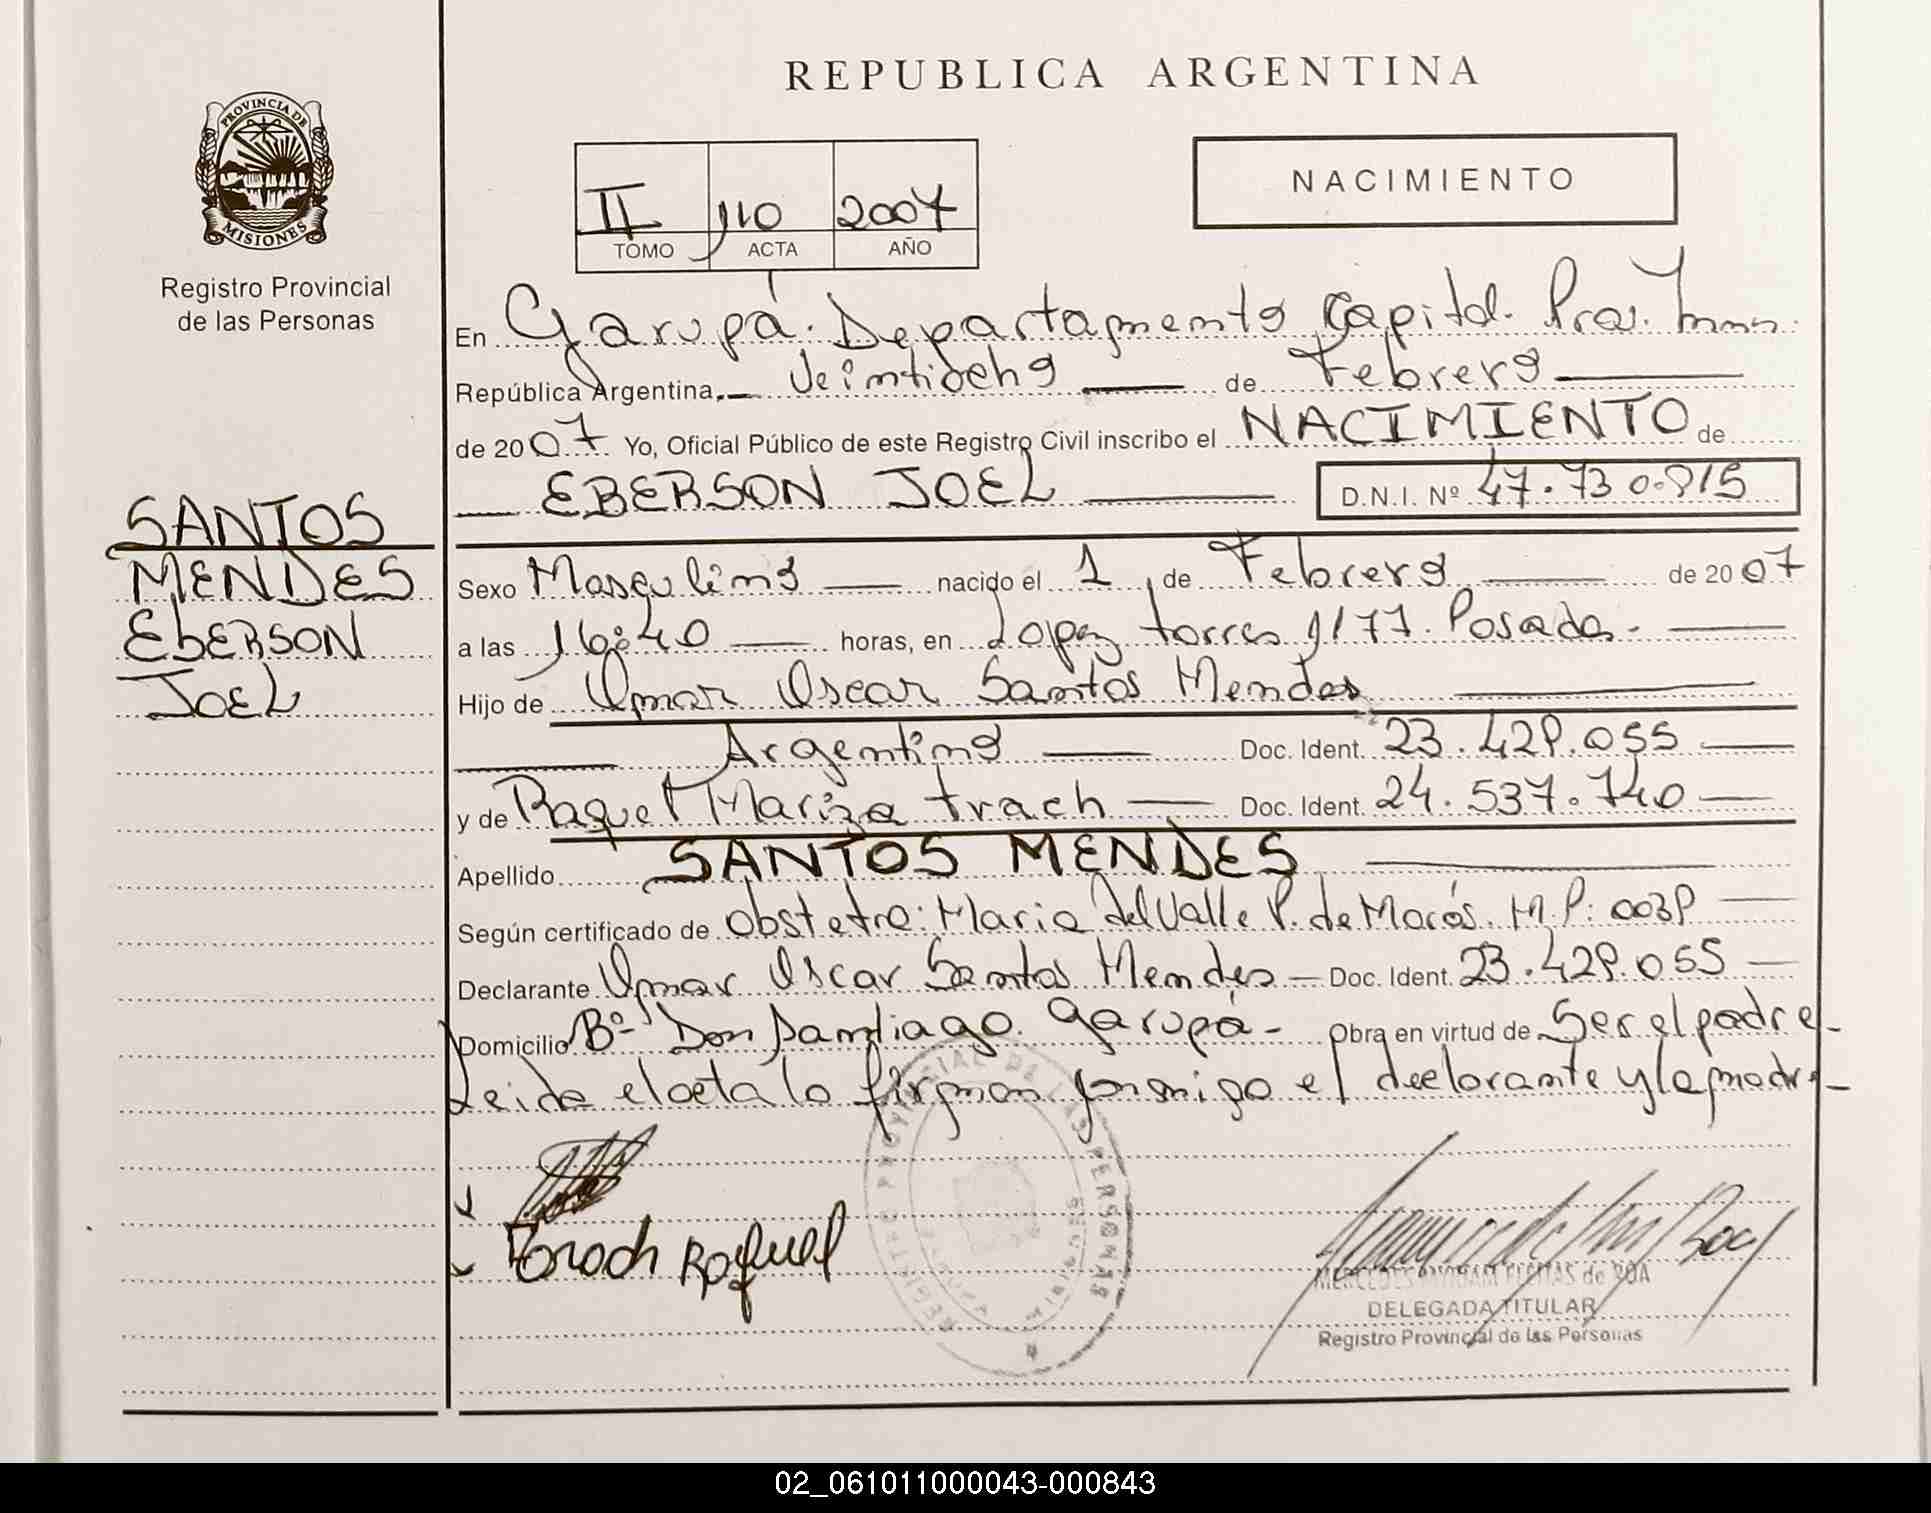 REPUBLICA ARGENTINA
PROVINCIA DE
MISIONES
Registro Provincial
de las Personas
II 110 2007
TOMO ACTA AÑO
NACIMIENTO
En Garupá. Departamento Capital. Prov. Mnes.
República Argentina, Veintiocho de Febrero
de 2007 Yo, Oficial Público de este Registro Civil inscribo el NACIMIENTO de
EBERSON JOEL D.N.I. Nº 47.730.815
SANTOS
MENDES
EbERSON
JOEL
Sexo Masculino nacido el 1 de Febrero de 2007
a las 16:40 horas, en Lopez torres 1177. Posadas.
Hijo de Omar Oscar Santos Mendes
Argentino Doc. Ident. 23.429.055
y de Raquel Mariza trach Doc. Ident. 24.537.740
Apellido SANTOS MENDES
Según certificado de Obstetra: Maria del Valle P. de M.P: 0039
Declarante Omar Oscar Santos Mendes Doc. Ident. 23.429.055
Domicilio Bº Don Santiago. Garupá - Obra en virtud de Ser el padre-
Leida el acta la firman conmigo el declarante y la madre-
Trach Raquel
REGISTRO PROVINCIAL DE LAS PERSONAS
MISIONES
MERCEDES MYRIAM FLEITAS de ROA
DELEGADA TITULAR
Registro Provincial de las Personas
02_061011000043-000843